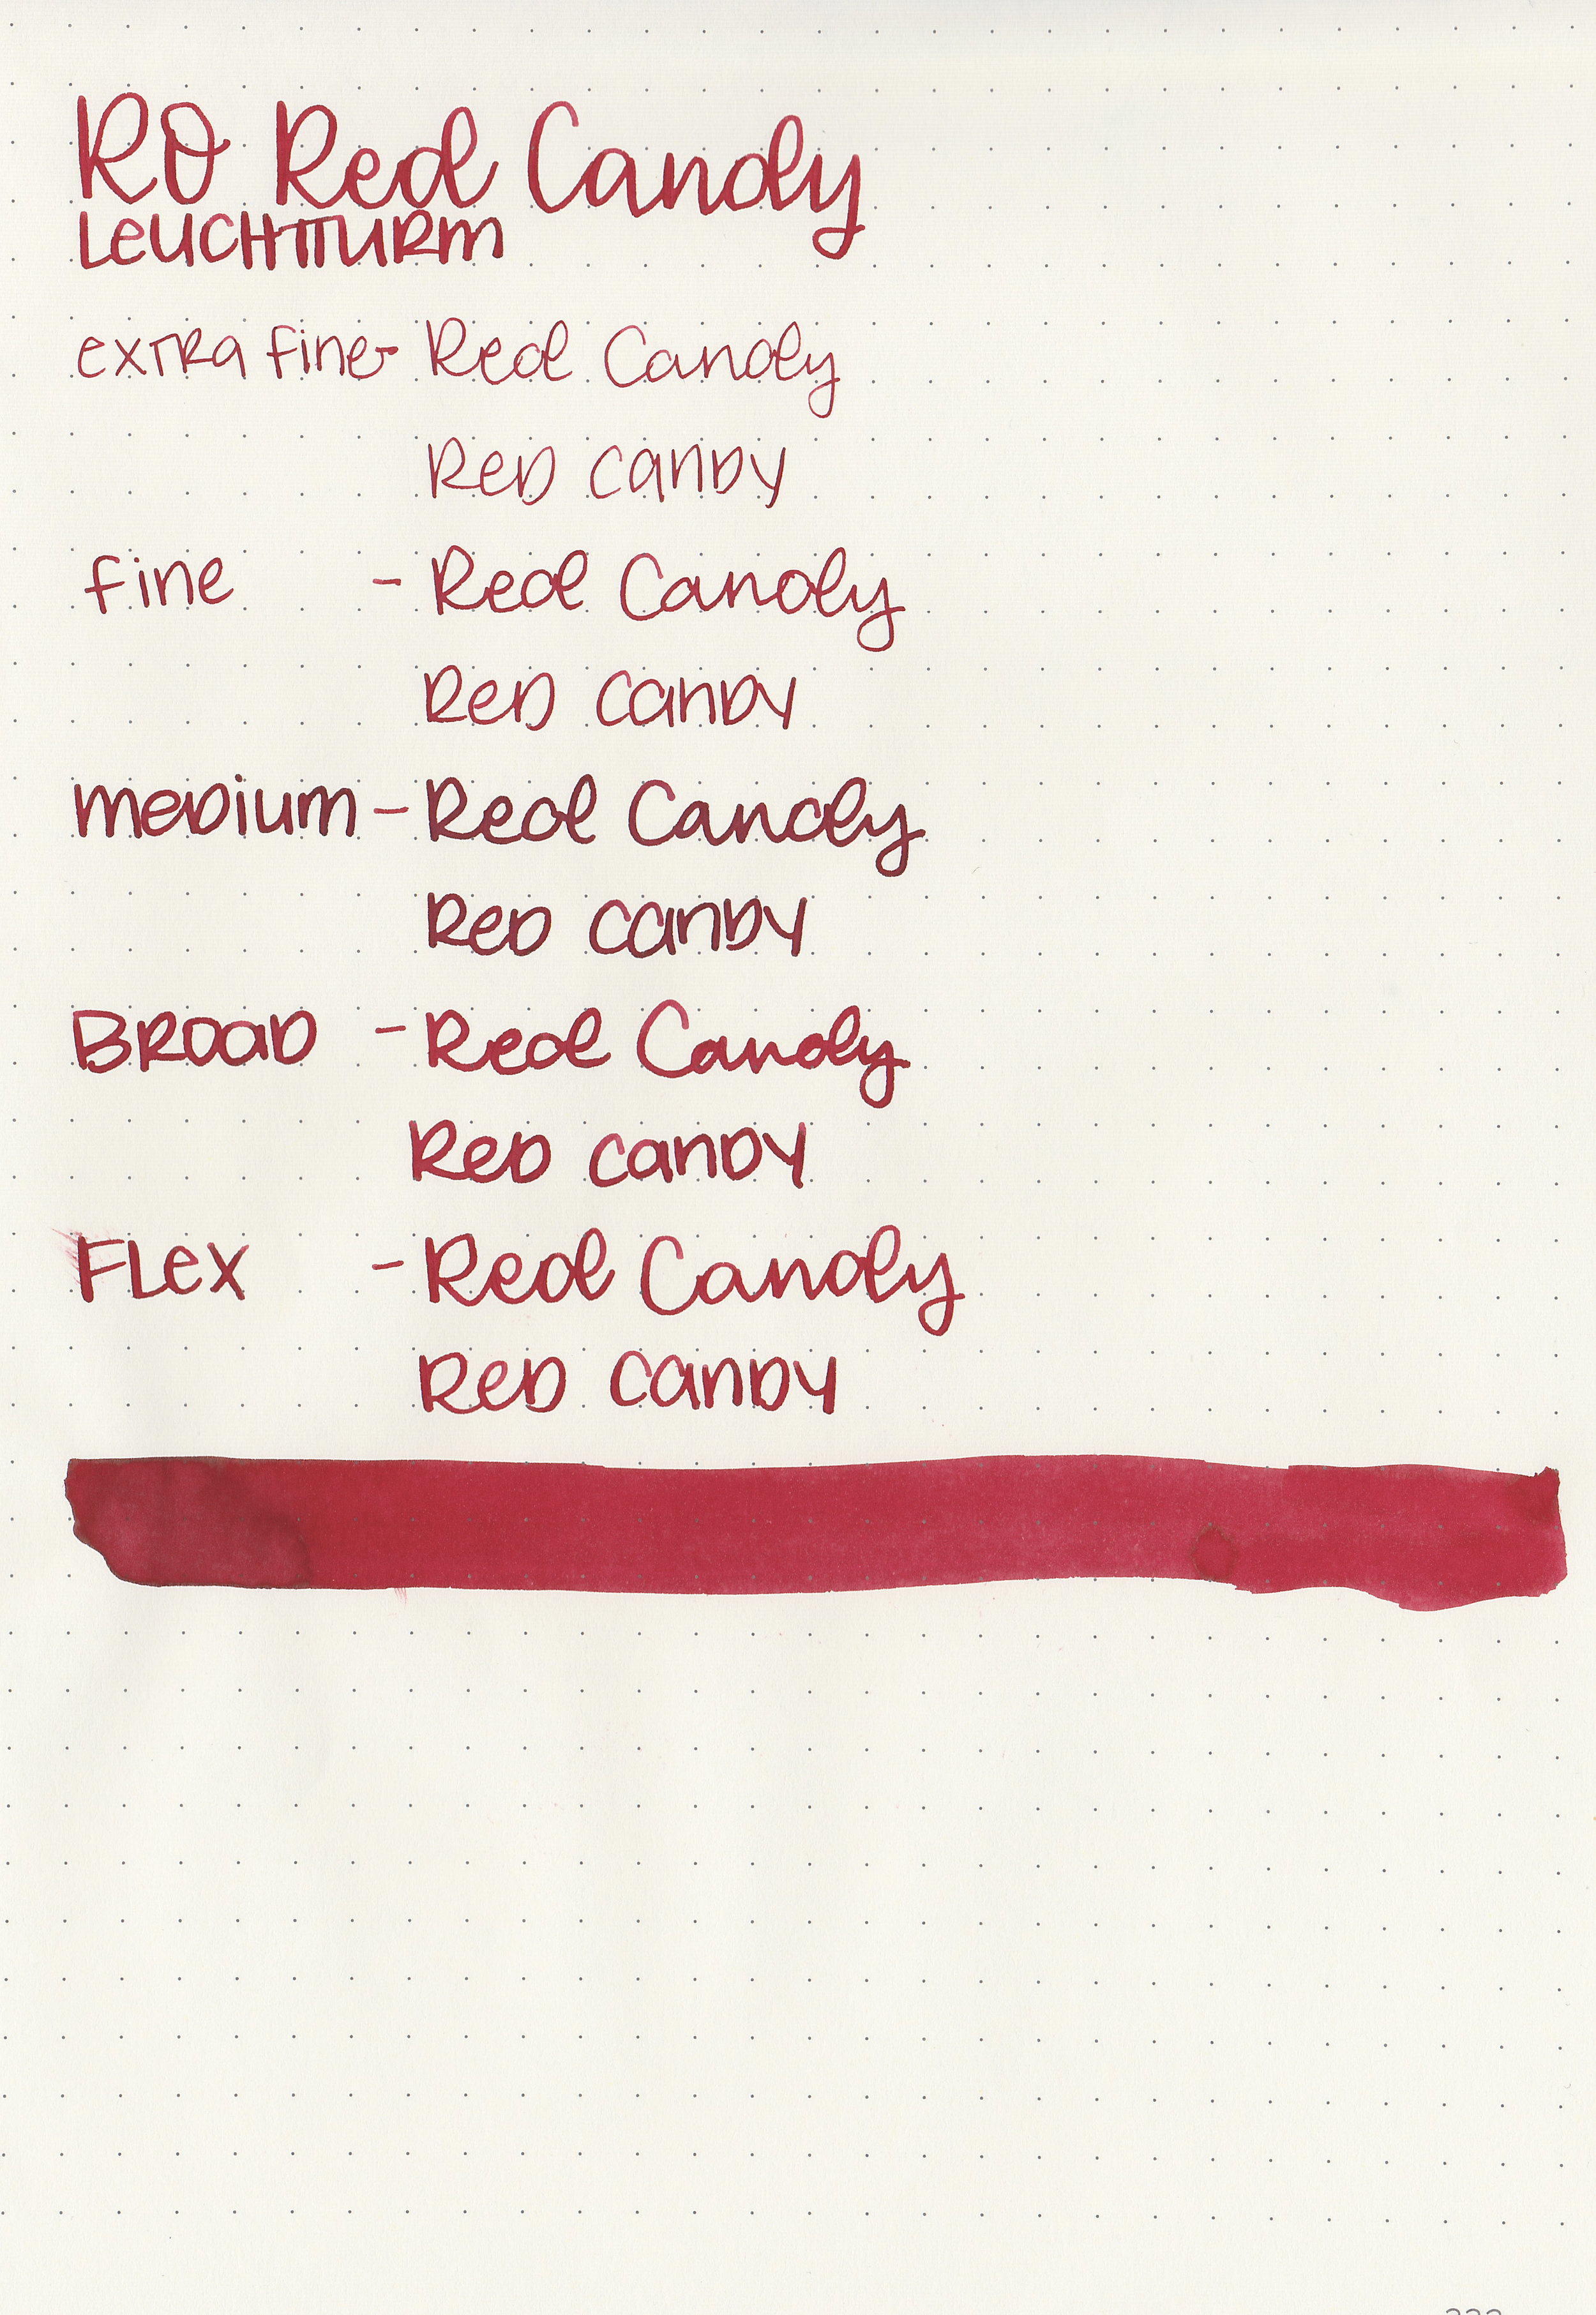 RO Red Candy
LeUCHTTURM
exTRa fine- Red Candy
ReD canDy
fine - Red Candy
ReD canDy
meDium - Red Candy
ReD canDy
BRoaD - Red Candy
ReD canDy
FLex - Red Candy
ReD canDy